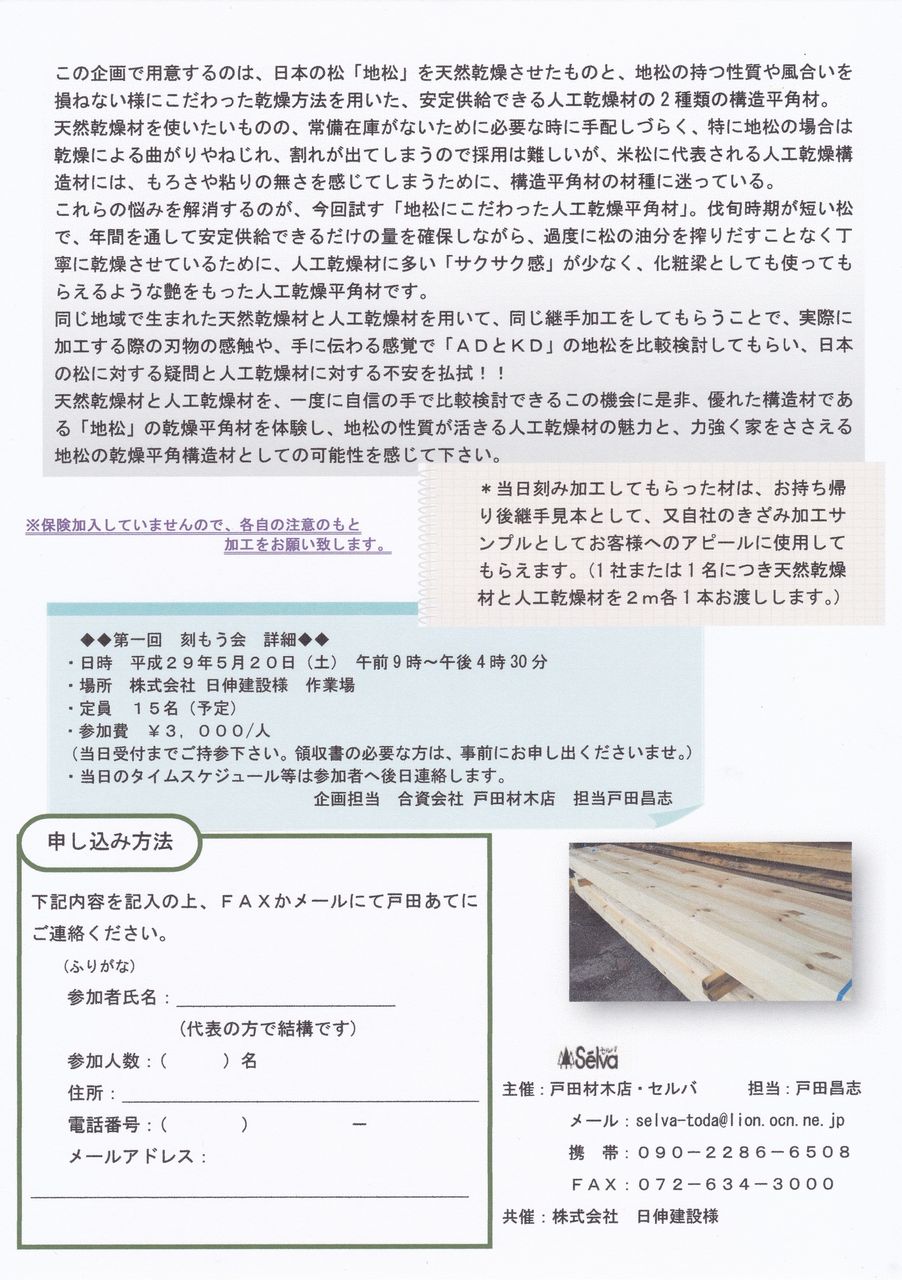 この企画で用意するのは、日本の松「地松」を天然乾燥させたものと、地松の持つ性質や風合いを
損ねない様にこだわった乾燥方法を用いた、安定供給できる人工乾燥材の2種類の構造平角材。
天然乾燥材を使いたいものの、常備在庫がないために必要な時に手配しづらく、特に地松の場合は
乾燥による曲がりやねじれ、割れが出てしまうので採用は難しいが、米松に代表される人工乾燥構
造材には、もろさや粘りの無さを感じてしまうために、構造平角材の材種に迷っている。
これらの悩みを解消するのが、今回試す「地松にこだわった人工乾燥平角材」。伐旬時期が短い松
で、年間を通して安定供給できるだけの量を確保しながら、過度に松の油分を搾りだすことなく丁
寧に乾燥させているために、人工乾燥材に多い「サクサク感」が少なく、化粧梁としても使っても
らえるような艶をもった人工乾燥平角材です。
同じ地域で生まれた天然乾燥材と人工乾燥材を用いて、同じ継手加工をしてもらうことで、実際に
加工する際の刃物の感触や、手に伝わる感覚で「ADとKD」の地松を比較検討してもらい、日本
の松に対する疑問と人工乾燥材に対する不安を払拭!!
天然乾燥材と人工乾燥材を、一度に自信の手で比較検討できるこの機会に是非、優れた構造材であ
る「地松」の乾燥平角材を体験し、地松の性質が活きる人工乾燥材の魅力と、力強く家をささえる
地松の乾燥平角構造材としての可能性を感じて下さい。
*当日刻み加工してもらった材は、お持ち帰
り後継手見本として、又自社のきざみ加工サ
ンプルとしてお客様へのアピールに使用して
もらえます。(1社または1名につき天然乾燥
材と人工乾燥材を2m各1本お渡しします。)
※保険加入していませんので、各自の注意のもと
加工をお願い致します。
◆◆第一回 刻もう会 詳細◆◆
・日時 平成29年5月20日(土) 午前9時~午後4時30分
・場所 株式会社 日伸建設様 作業場
・定員 15名(予定)
・参加費 ¥3,000/人
(当日受付までご持参下さい。領収書の必要な方は、事前にお申し出くださいませ。)
・当日のタイムスケジュール等は参加者へ後日連絡します。
企画担当 合資会社 戸田材木店 担当戸田昌志
申し込み方法
下記内容を記入の上、FAXかメールにて戸田あてに
ご連絡ください。
(ふりがな)
参加者氏名:
(代表の方で結構です)
参加人数:( )名
住所:
電話番号:( ) ー
メールアドレス:
Sélva セルバ
主催:戸田材木店・セルバ 担当:戸田昌志
メール:selva-toda@lion.ocn.ne.jp
携 帯:090-2286-6508
FAX:072-634-3000
共催:株式会社 日伸建設様